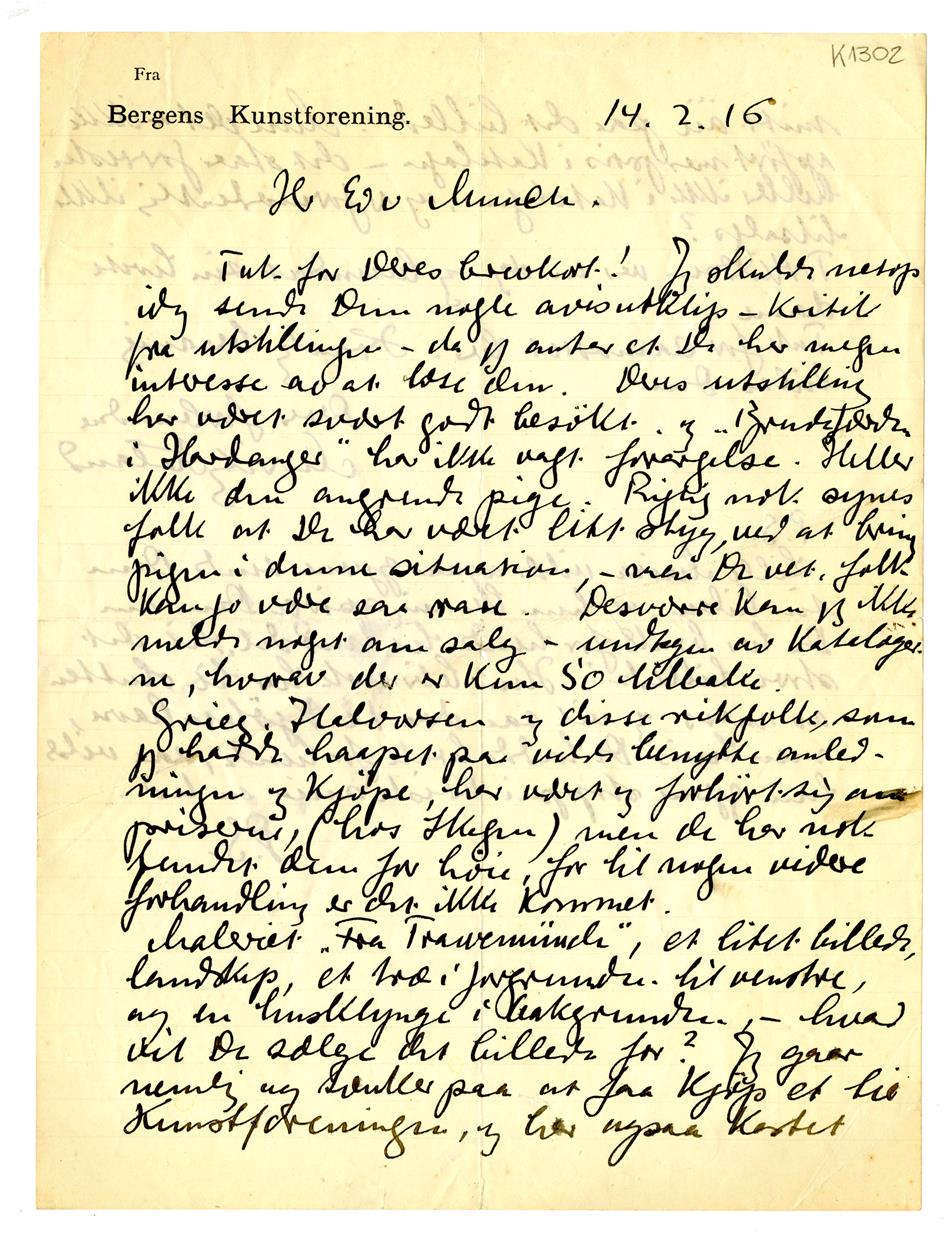 K1302
Fra
Bergens Kunstforening.
14. 2. 16
Hr Edv Munch.
Tak for Deres brevkort! Jeg skulde netop
idag sende Dem nogle avisutklip – Kritik
fra utstillingen – da jeg antar at De har megen
interesse av at læse dem. Deres utstilling
har været svært godt besökt. og „Brudefærden
i Hardanger" har ikke vagt forargelse. Heller
ikke den angrende pige. Rigtig nok synes
folk at De har været litt styg, ved at bringe
pigen i denne situation, – men De vet, folk
kan jo være saa rare. Desværre kan jeg ikke
melde noget om salg – undtagen av Kataloger-
ne, hvorav der er kun 50 tilbake.
Grieg, Halvorsen og disse rikfolk, som
jeg hadde haapet paa vilde benytte anled-
ningen og Kjöpe, har været og forhört sig om
priserne, (hos Skagen) men de har nok
fundet dem for höie, for til nogen videre
forhandling er det ikke kommet.
Maleriet „Fra Trawemünde", et litet billede,
landskap, et træ i forgrunden til venstre,
og en husklynge i bakgrunden, – hvad
vil De sælge det billede for? Jeg gaar
nemlig og tænker paa at faa Kjöpt et til
Kunstforeningen, og har ogsaa kastet